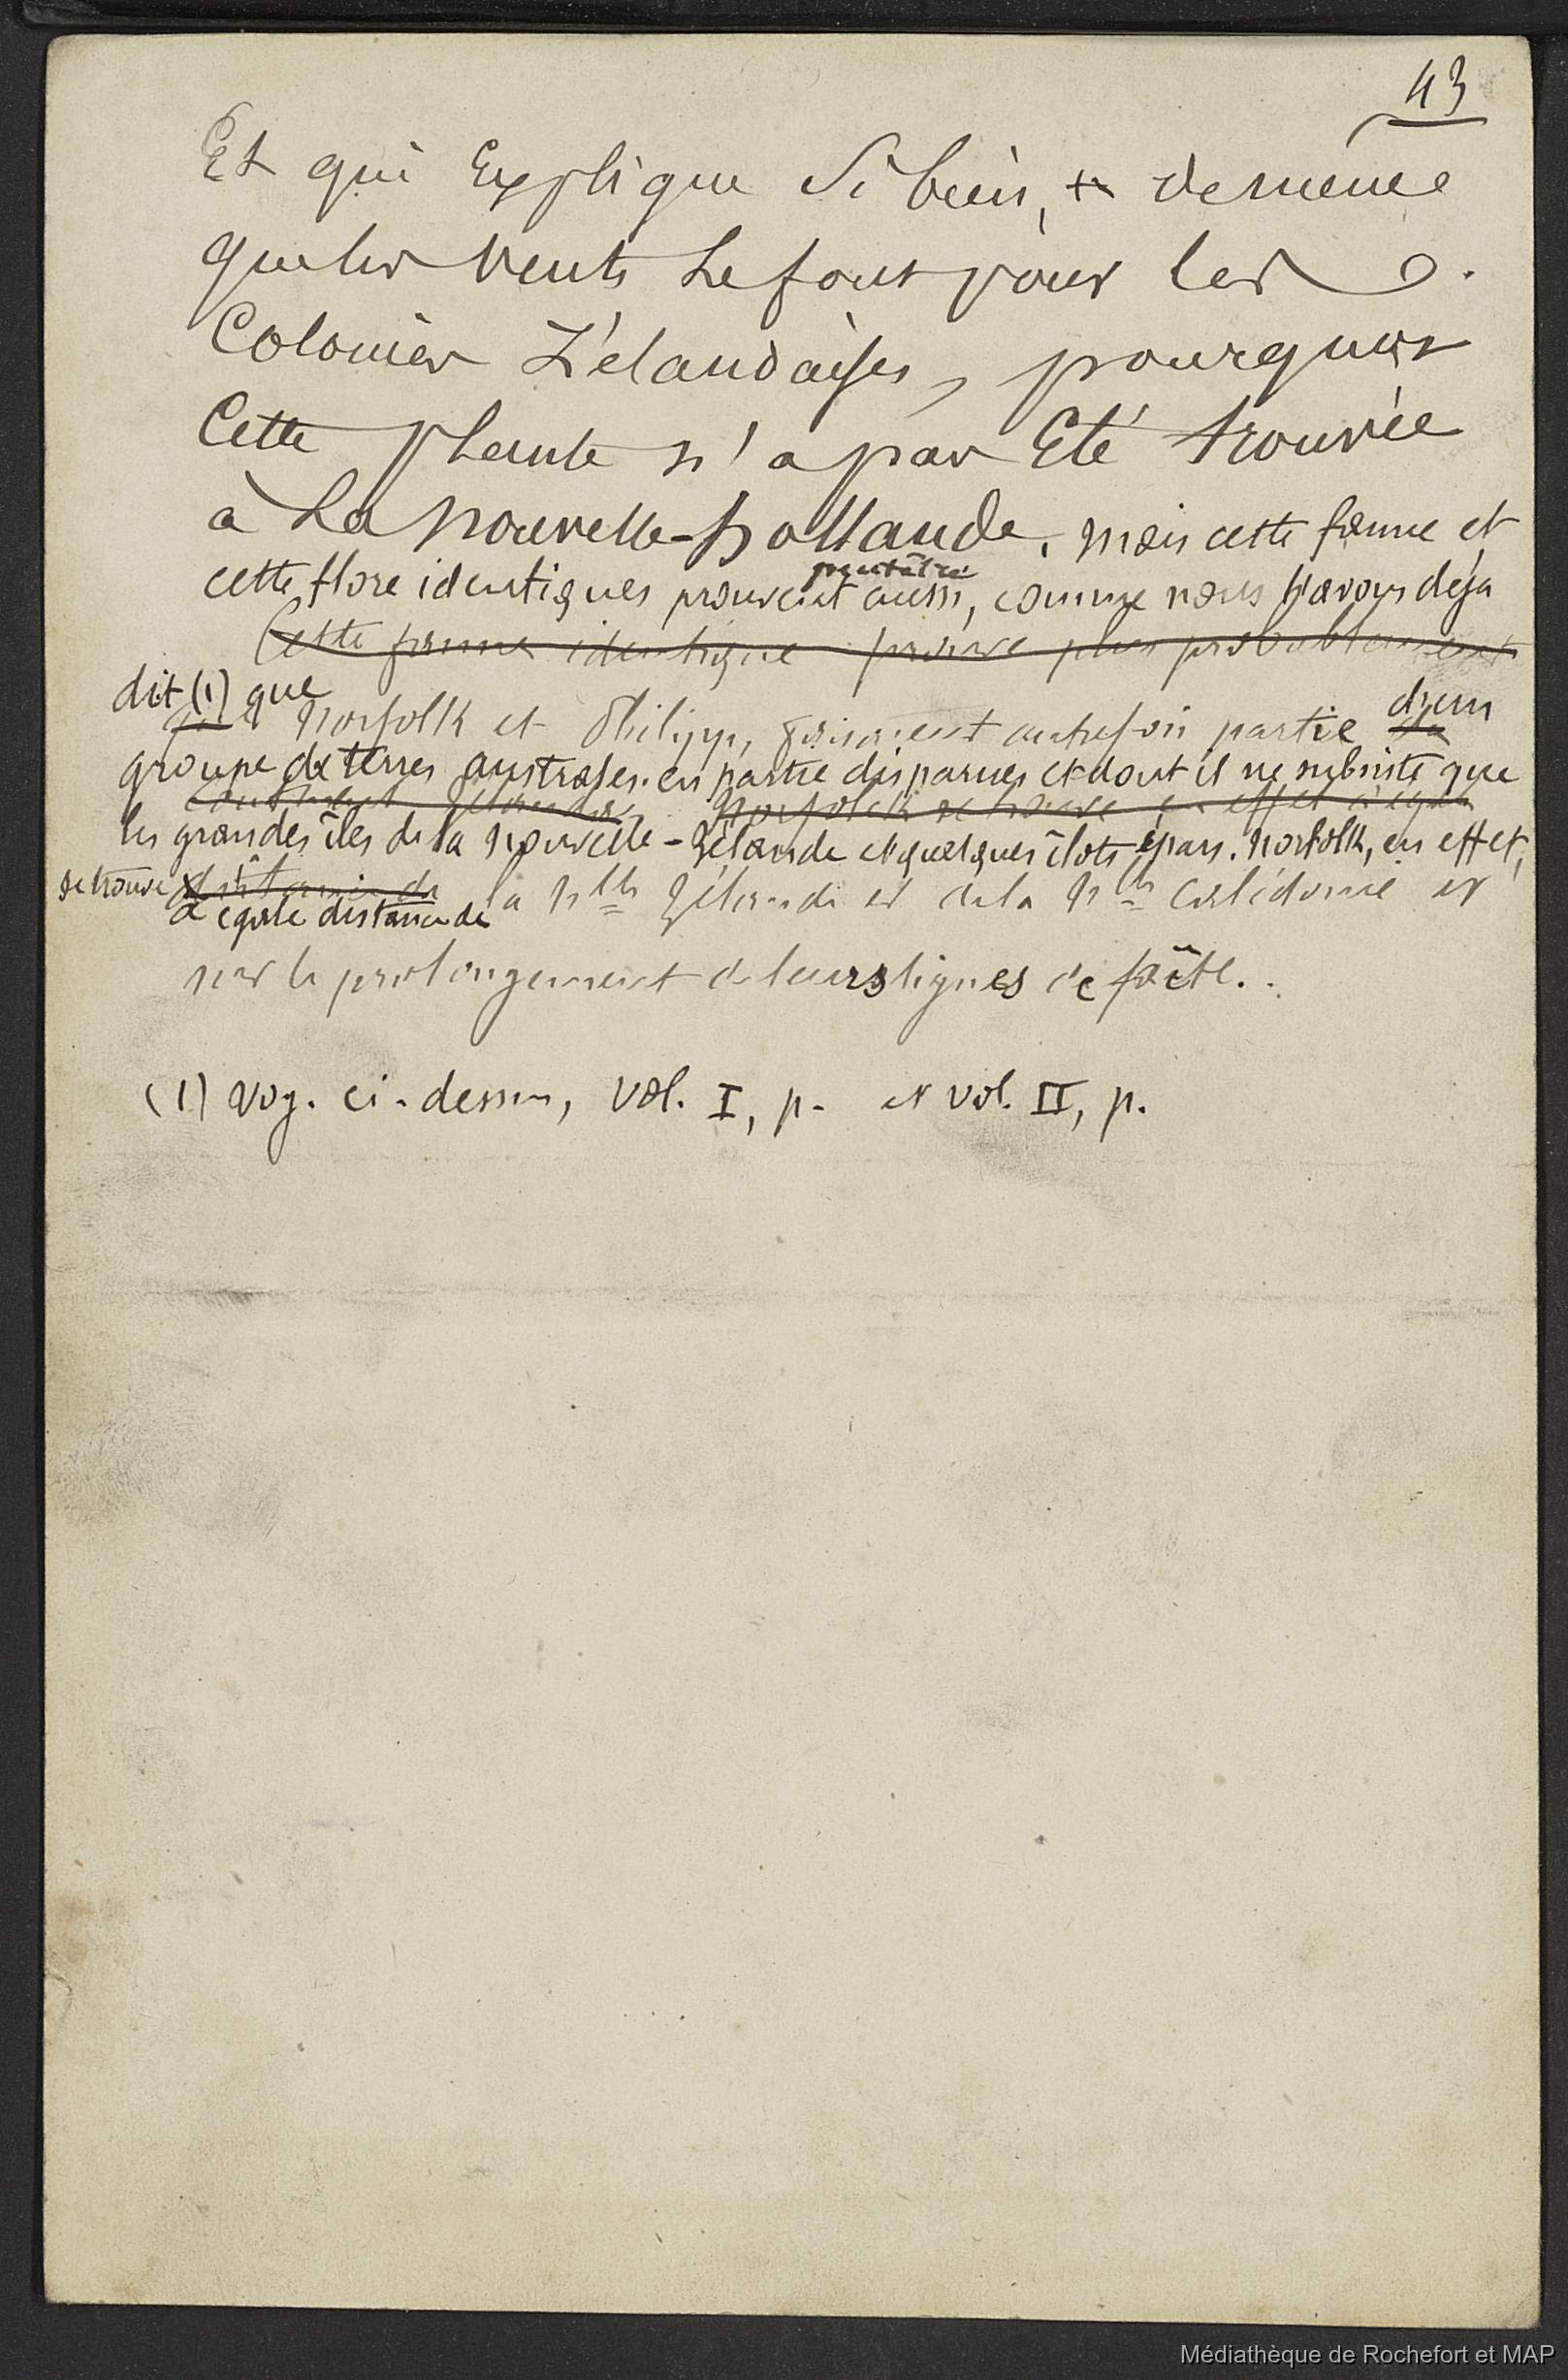 43
Et qui Explique Si bien, de même
que les vents le font pour les
Colonies Zélandaises, pourquoi
Cette plante n'a pas Eté trouvée
à la Nouvelle-hollande. mais cette faune et
peut-être
cette flore identiques prouvent aussi, comme nous l'avons déjà
Cette faune identique prouve plus probablement
dit (1) que
que Norfolk et Philipp, faisaient autrefois partie d'un
groupe de terres australes en partie disparues et dont il ne subsiste que
Norfolk se trouve en effet à égale
les grandes îles de la Nouvelle-Zélande et quelques îlots épars. Norfolk, en effet,
se trouve distance de la Nlle Zélande et de la Nlle Calédonie et
à égale distance de
sur le prolongement de leurs lignes de faîte.
(1) Voy. ci-dessus, vol. I, p. et vol. II, p.
Médiathèque de Rochefort et MAP